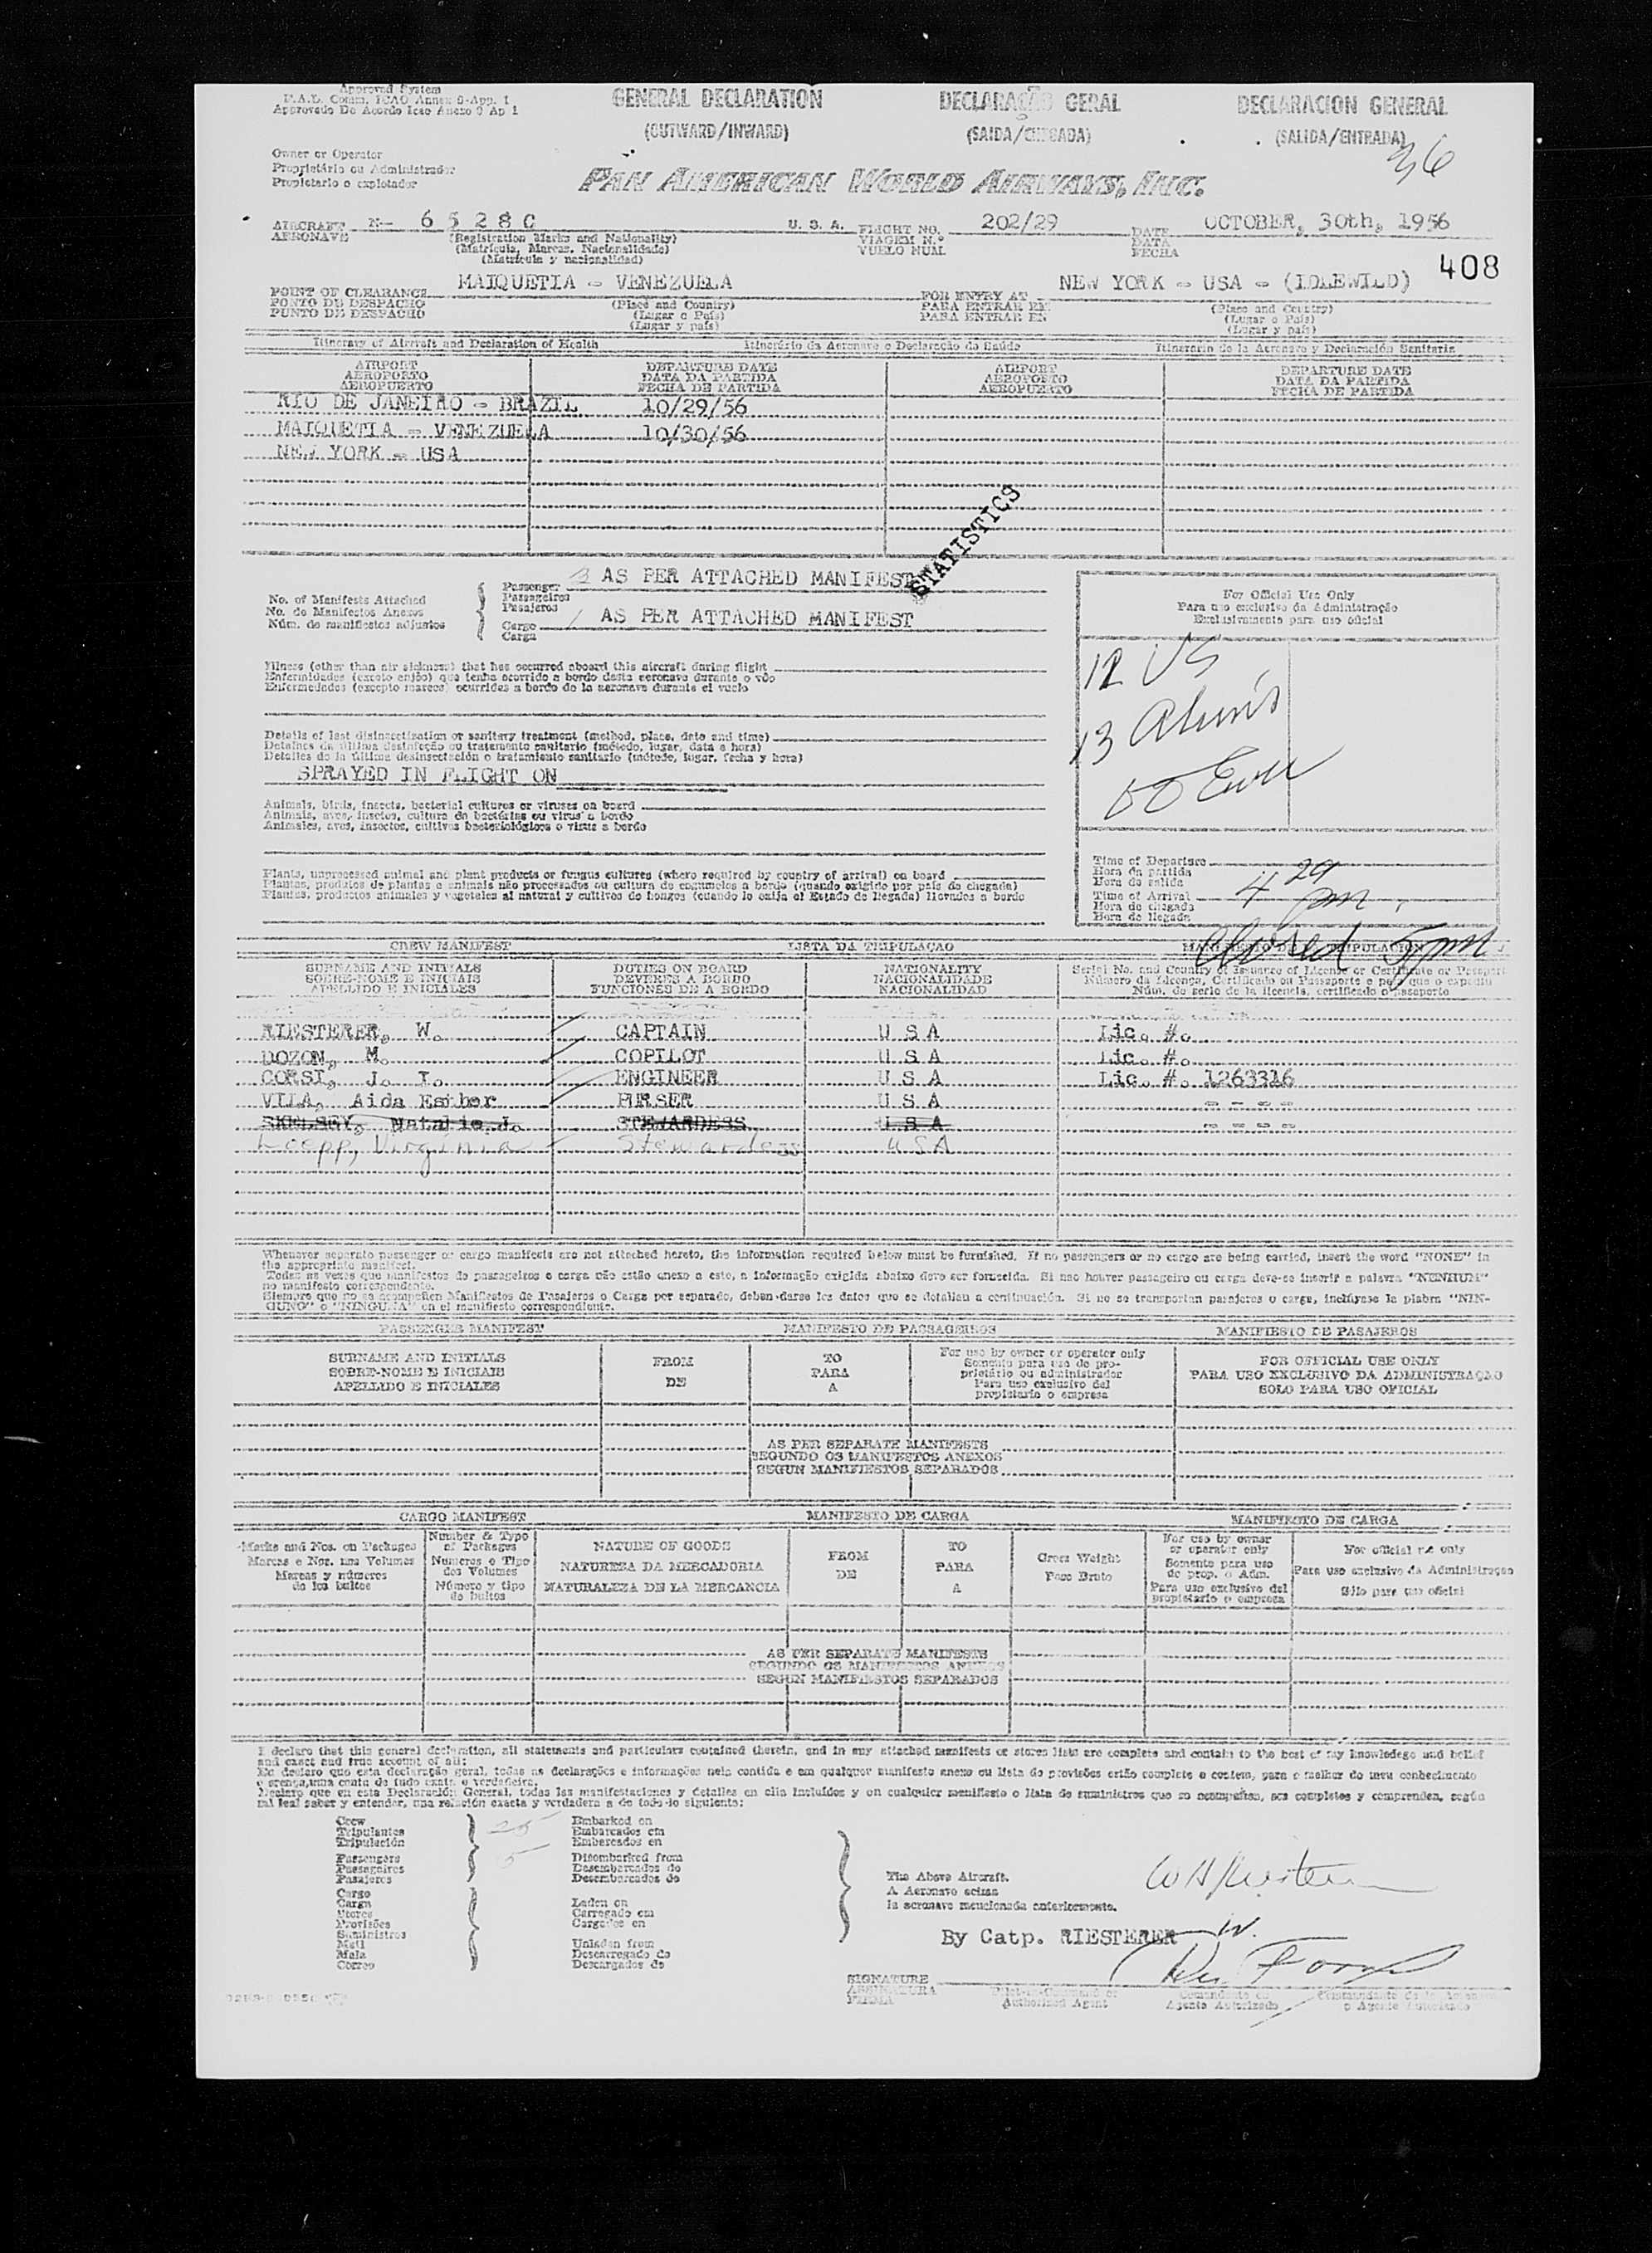 Approved System
F.A.L. Comm. ICAO Annex 9-App. 1
Approvado De Acordo Icao Anexo 9 Ap 1
GENERAL DECLARATION
(OUTWARD/INWARD)
DECLARAÇÃO GERAL
(SAIDA/CHEGADA)
DECLARACION GENERAL
(SALIDA/ENTRADA)
36
Owner or Operator
Proprietário ou Administrador
Propietario o explotador
PAN AMERICAN WORLD AIRWAYS, INC.
AIRCRAFT N- 6 5 2 8 C U. S. A. FLIGHT NO. 202/29 DATE OCTOBER, 30th, 1956
AERONAVE (Registration Marks and Nationality) VIAGEM N.º DATA
(Matrícula, Marcas, Nacionalidade) VUELO NUM. FECHA
(Matrícula y nacionalidad)
408
POINT OF CLEARANCE MAIQUETIA - VENEZUELA FOR ENTRY AT NEW YORK - USA - (IDLEWILD)
PONTO DE DESPACHO (Place and Country) PARA ENTRAR EM (Place and Country)
PUNTO DE DESPACHO (Lugar o País) PARA ENTRAR EN (Lugar o País)
(Lugar y país) (Lugar y país)
Itinerary of Aircraft and Declaration of Health Itinerário da Aeronave e Declaração de Saúde Itinerario de la Aeronave y Declaración Sanitaria
AIRPORT DEPARTURE DATE AIRPORT DEPARTURE DATE
AEROPORTO DATA DA PARTIDA AEROPORTO DATA DA PARTIDA
AEROPUERTO FECHA DE PARTIDA AEROPUERTO FECHA DE PARTIDA
RIO DE JANEIRO - BRAZIL 10/29/56
MAIQUETIA - VENEZUELA 10/30/56
NEW YORK - USA
STATISTICS
No. of Manifests Attached
No. de Manifestos Anexos
Núm. de manifiestos adjuntos
Passenger 3 AS PER ATTACHED MANIFEST
Passageiros
Pasajeros
Cargo 1 AS PER ATTACHED MANIFEST
Carga
For Official Use Only
Para uso exclusivo da Administração
Exclusivamente para uso oficial
12 US
13 Aliens
Illness (other than air sickness) that has occurred aboard this aircraft during flight
Enfermidades (exceto enjôo) que tenha ocorrido a bordo desta aeronave durante o vôo
Enfermedades (excepto mareos) ocurridas a bordo de la aeronave durante el vuelo
Details of last disinsectization or sanitary treatment (method, place, date and time)
Detalhes da última desinfeção ou tratamento sanitario (método, lugar, data e hora)
Detalles de la última desinsectación o tratamiento sanitario (método, lugar, fecha y hora)
SPRAYED IN FLIGHT ON
Animals, birds, insects, bacterial cultures or viruses on board
Animais, aves, insetos, cultura de bactérias ou virus a bordo
Animales, aves, insectos, cultivos bacteriológicos o virus a bordo
Plants, unprocessed animal and plant products or fungus cultures (where required by country of arrival) on board
Plantas, produtos de plantas e animais não processados ou cultura de cogumelos a bordo (quando exigido por país de chegada)
Plantas, productos animales y vegetales al natural y cultivos de hongos (cuando lo exija el Estado de llegada) llevados a bordo
Time of Departure
Hora da partida
Hora de salida
Time of Arrival 4 29 pm.
Hora da chegada
Hora de llegada
5 pm
CREW MANIFEST LISTA DA TRIPULAÇAO MANIFIESTO DE TRIPULACION
SURNAME AND INITIALS DUTIES ON BOARD NATIONALITY Serial No. and Country of Issuance of License or Certificate or Passport
SOBRE-NOME E INICIAIS DEVERES A BORDO NACIONALIDADE Número da Licença, Certificado ou Passaporte e país que o expediu
APELLIDO E INICIALES FUNCIONES DE A BORDO NACIONALIDAD Núm. de serie de la licencia, certificado o pasaporte
RIESTERER, W. CAPTAIN U S A Lic. #.
DOZON, M. COPILOT U S A Lic. #.
CORSI, J. I. ENGINEER U S A Lic. #. 1263316
VILA, Aida Esther PURSER U S A - - - -
Natalie J. STEWARDESS U S A - - - -
Loepp, Virginia Stewardess USA
Whenever separate passenger or cargo manifests are not attached hereto, the information required below must be furnished. If no passengers or no cargo are being carried, insert the word "NONE" in
the appropriate manifest.
Todas as vezes que manifestos de passageiros e carga não estão anexo a este, a informação exigida abaixo deve ser fornecida. Si nao houver passageiro ou carga deve-se inserir a palavra "NENHUM"
no manifesto correspondente.
Siempre que no se acompañen Manifiestos de Pasajeros o Carga por separado, deben darse los datos que se detallan a continuación. Si no se transportan pasajeros o carga, inclúyase la plabra "NIN-
GUNO" o "NINGUNA" en el manifiesto correspondiente.
PASSENGER MANIFEST MANIFESTO DE PASSAGEIROS MANIFIESTO DE PASAJEROS
SURNAME AND INITIALS FROM TO For use by owner or operator only FOR OFFICIAL USE ONLY
SOBRE-NOME E INICIAIS DE PARA Somente para uso do pro- PARA USO EXCLUSIVO DA ADMINISTRAÇAO
APELLIDO E INICIALES A prietário ou administrador SOLO PARA USO OFICIAL
Para uso exclusivo del
propietario o empresa
AS PER SEPARATE MANIFESTS
SEGUNDO OS MANIFESTOS ANEXOS
SEGUN MANIFIESTOS SEPARADOS
CARGO MANIFEST MANIFESTO DE CARGA MANIFIESTO DE CARGA
Marks and Nos. on Packages
Marcas e Nos. nos Volumes
Marcas y números
de los bultos
Number & Type
of Packages
Numeros e Tipo
dos Volumes
Número y tipo
de bultos
NATURE OF GOODS
NATUREZA DA MERCADORIA
NATURALEZA DE LA MERCANCIA
FROM
DE
TO
PARA
A
Gross Weight
Peso Bruto
For use by owner
or operator only
Somente para uso
de prop. o Adm.
Para uso exclusivo del
propietario o empresa
For official use only
Para uso exclusivo da Administraçao
Sólo para uso oficial
AS PER SEPARATE MANIFESTS
SEGUNDO OS MANIFESTOS ANEXOS
SEGUN MANIFIESTOS SEPARADOS
I declare that this general declaration, all statements and particulars contained therein, and in any attached manifests or stores lists are complete and contain to the best of my knowledege and belief
and exact and true account of all:
Eu declaro que esta declaração geral, todas as declarações e informações nela contida e em qualquer manifesto anexo ou lista de provisões estão completo e contem, para o melhor do meu conhecimento
e crença, uma conta de tudo exata e verdadeira.
Declaro que en esta Declaración General, todas las manifestaciones y detalles en ella incluidos y en cualquier manifiesto o lista de suministros que se acompañan, son completos y comprenden, según
mi leal saber y entender, una relación exacta y verdadera a de todo lo siguiente:
Crew
Tripulantes
Tripulación
Passengers
Passageiros
Pasajeros
Cargo
Carga
Stores
Provisões
Suministros
Mail
Mala
Correo
25
5
Embarked on
Embarcados em
Embarcados en
Disembarked from
Desembarcados do
Desembarcados de
Laden on
Carregado em
Cargados en
Unladen from
Descarregado do
Descargados de
The Above Aircraft.
A Aeronave acima
la aeronave mencionada anteriormente.
By Catp. RIESTERER W.
SIGNATURE
ASSINATURA
FIRMA
Authorized Agent
Agente Autorizado
o Agente Autorizado